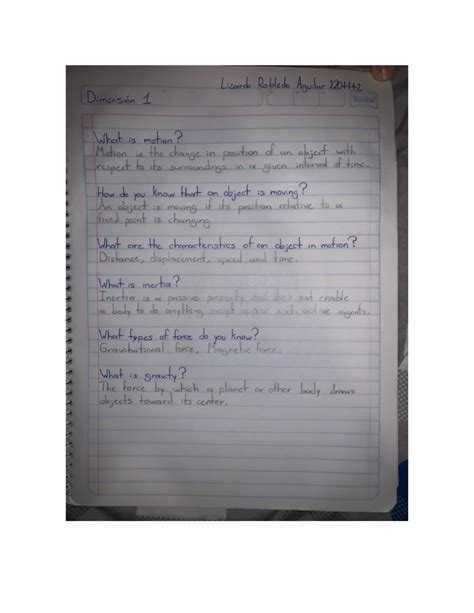 Lizardo Robledo Aguilar 2204442
Dimensión 1
What is motion?
Motion is the change in position of an object with
respect to its surroundings in a given interval of time.
How do you know that an object is moving?
An object is moving if its position relative to a
fixed point is changing
What are the characteristics of an object in motion?
Distance, displacement, speed and time.
What is inertia?
Inertia is a passive property and does not enable
a body to do anything except oppose such active agents.
What types of force do you know?
Gravitational force, Magnetic force.
What is gravity?
The force by which a planet or other body draws
objects toward its center.